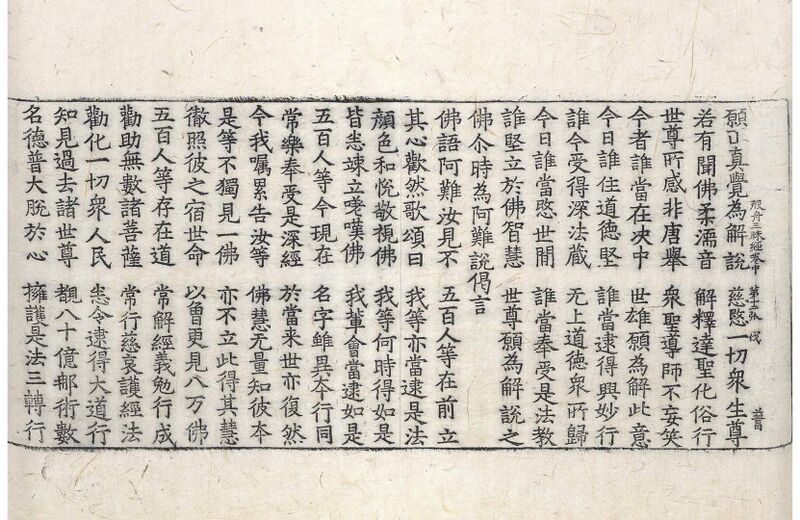 般舟三昧經卷中 第十張 伐
願正真覺為解說 慈愍一切衆生尊
若有聞佛柔濡音 解釋達聖化俗行
世尊所感非唐舉 衆聖導師不妄笑
今者誰當在决中 世雄願為解此意
今日誰住道德堅 誰當逮得興妙行
誰今受得深法藏 无上道德衆所歸
今日誰當愍世間 誰當奉受是法教
誰堅立於佛智慧 世尊願為解說之
佛尒時為阿難說偈言
佛語阿難汝見不 五百人等在前立
其心歡然歌頌曰 我等亦當逮是法
顏色和悅敬視佛 我等何時得如是
皆悉竦立嗟嘆佛 我輩會當逮如是
五百人等今現在 名字雖異夲行同
常樂奉受是深經 於當来世亦復然
今我囑累告汝等 佛慧无量知彼夲
是等不獨見一佛 亦不立此得其慧
徹照彼之宿世命 以曽更見八万佛
五百人等存在道 常解經義勉行成
勸助無數諸菩薩 常行慈哀護經法
勸化一切衆人民 悉令逮得大道行
知見過去諸世尊 覩八十億那術數
名德普大脫於心 擁護是法三轉行